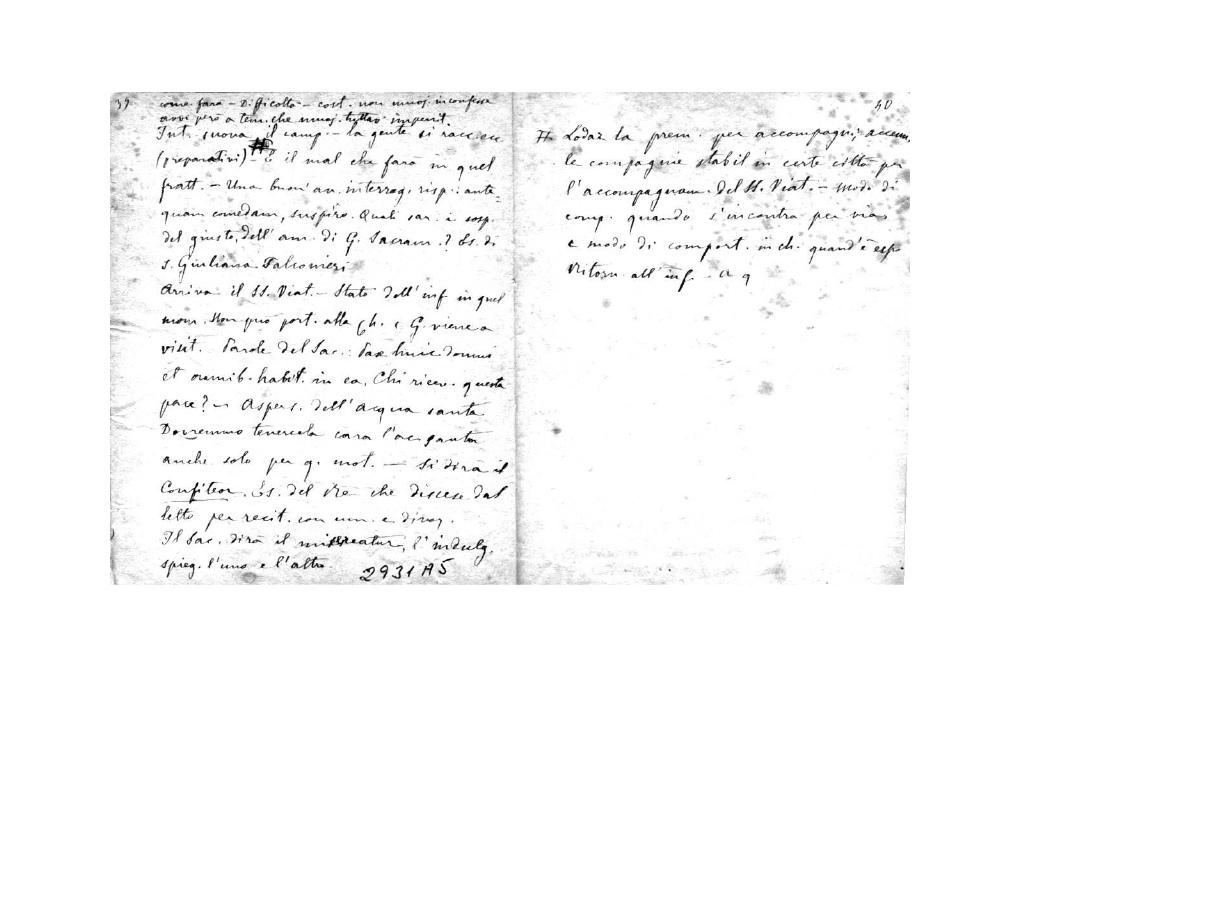 39
come farà – Difficoltà – cost. non muoj. inconfess
avvi però a tem. che muoj. tuttav impenit.
Int. suona il camp. – la gente si raccoglie
(preparativi) – # È il mal che farà in quel
fratt. – Una buon' an. interrog. risp.: ante-
quam comedam, suspiro. Quali sar. i sosp.
del giusto, dell' am. di G. Sacram.? Es. di
S. Giuliana Falconieri
Arriva il SS. Viat. – Stato dell' inf in quel
mom. Non può port. alla Ch. e G. viene a
visit. Parole del Sac.: Pax huic domui
et omnib. habit. in ea. Chi ricev. questa
pace? – Aspers. dell' acqua santa
Dovremmo tenercela cara l'ac. santa
anche solo per q. mot. – Si dirà il
Confiteor. Es. del Re che discese dal
letto per recit. con um. e divoz.
Il Sac. dirà il misereatur, l' indulg.
spieg. l'uno e l'altro
2931 A5
40
# Lodaz la prem. per accompagn;
le compagnie stabil in certe città per
l'accompagnam. del SS. Viat. – modo di
comp. quando s'incontra per via
e modo di comport. in ch. quand'è espo
Ritorn all' inf – a q